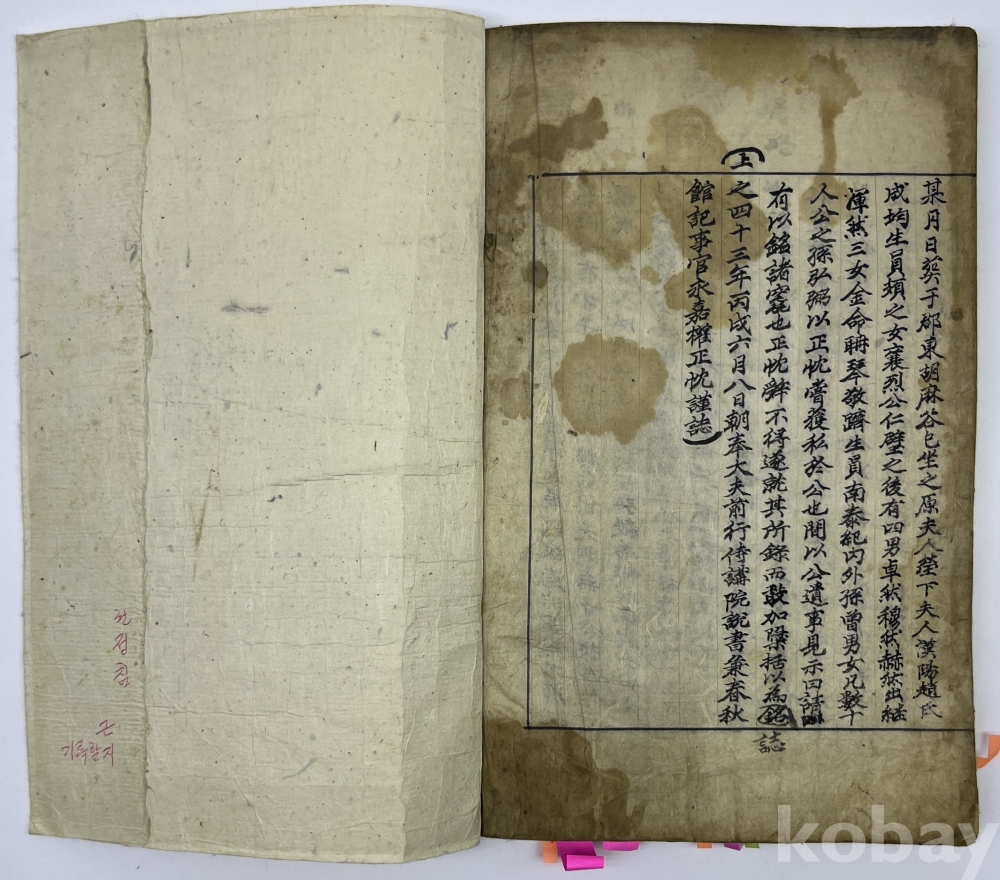 某月日葬于郡東胡麻谷巳坐之原夫人塋下夫人漢陽趙氏
成均生員頍之女襄烈公仁璧之後有四男卓然穆然赫然出結
渾然三女金命聃琴敬躋生員南泰紀內外孫曾男女凡數十
人公之孫弘弼以正忱嘗獲私於公也間以公遺事見示曰請
有以銘諸窀也正忱辭不得遂就其所錄而敢加檃括以為銘
誌
(上)
之四十三年丙戌六月八日朝奉大夫前行侍講院說書兼春秋
館記事官永嘉權正忱謹誌)
전첨
근
기록할지
kobay